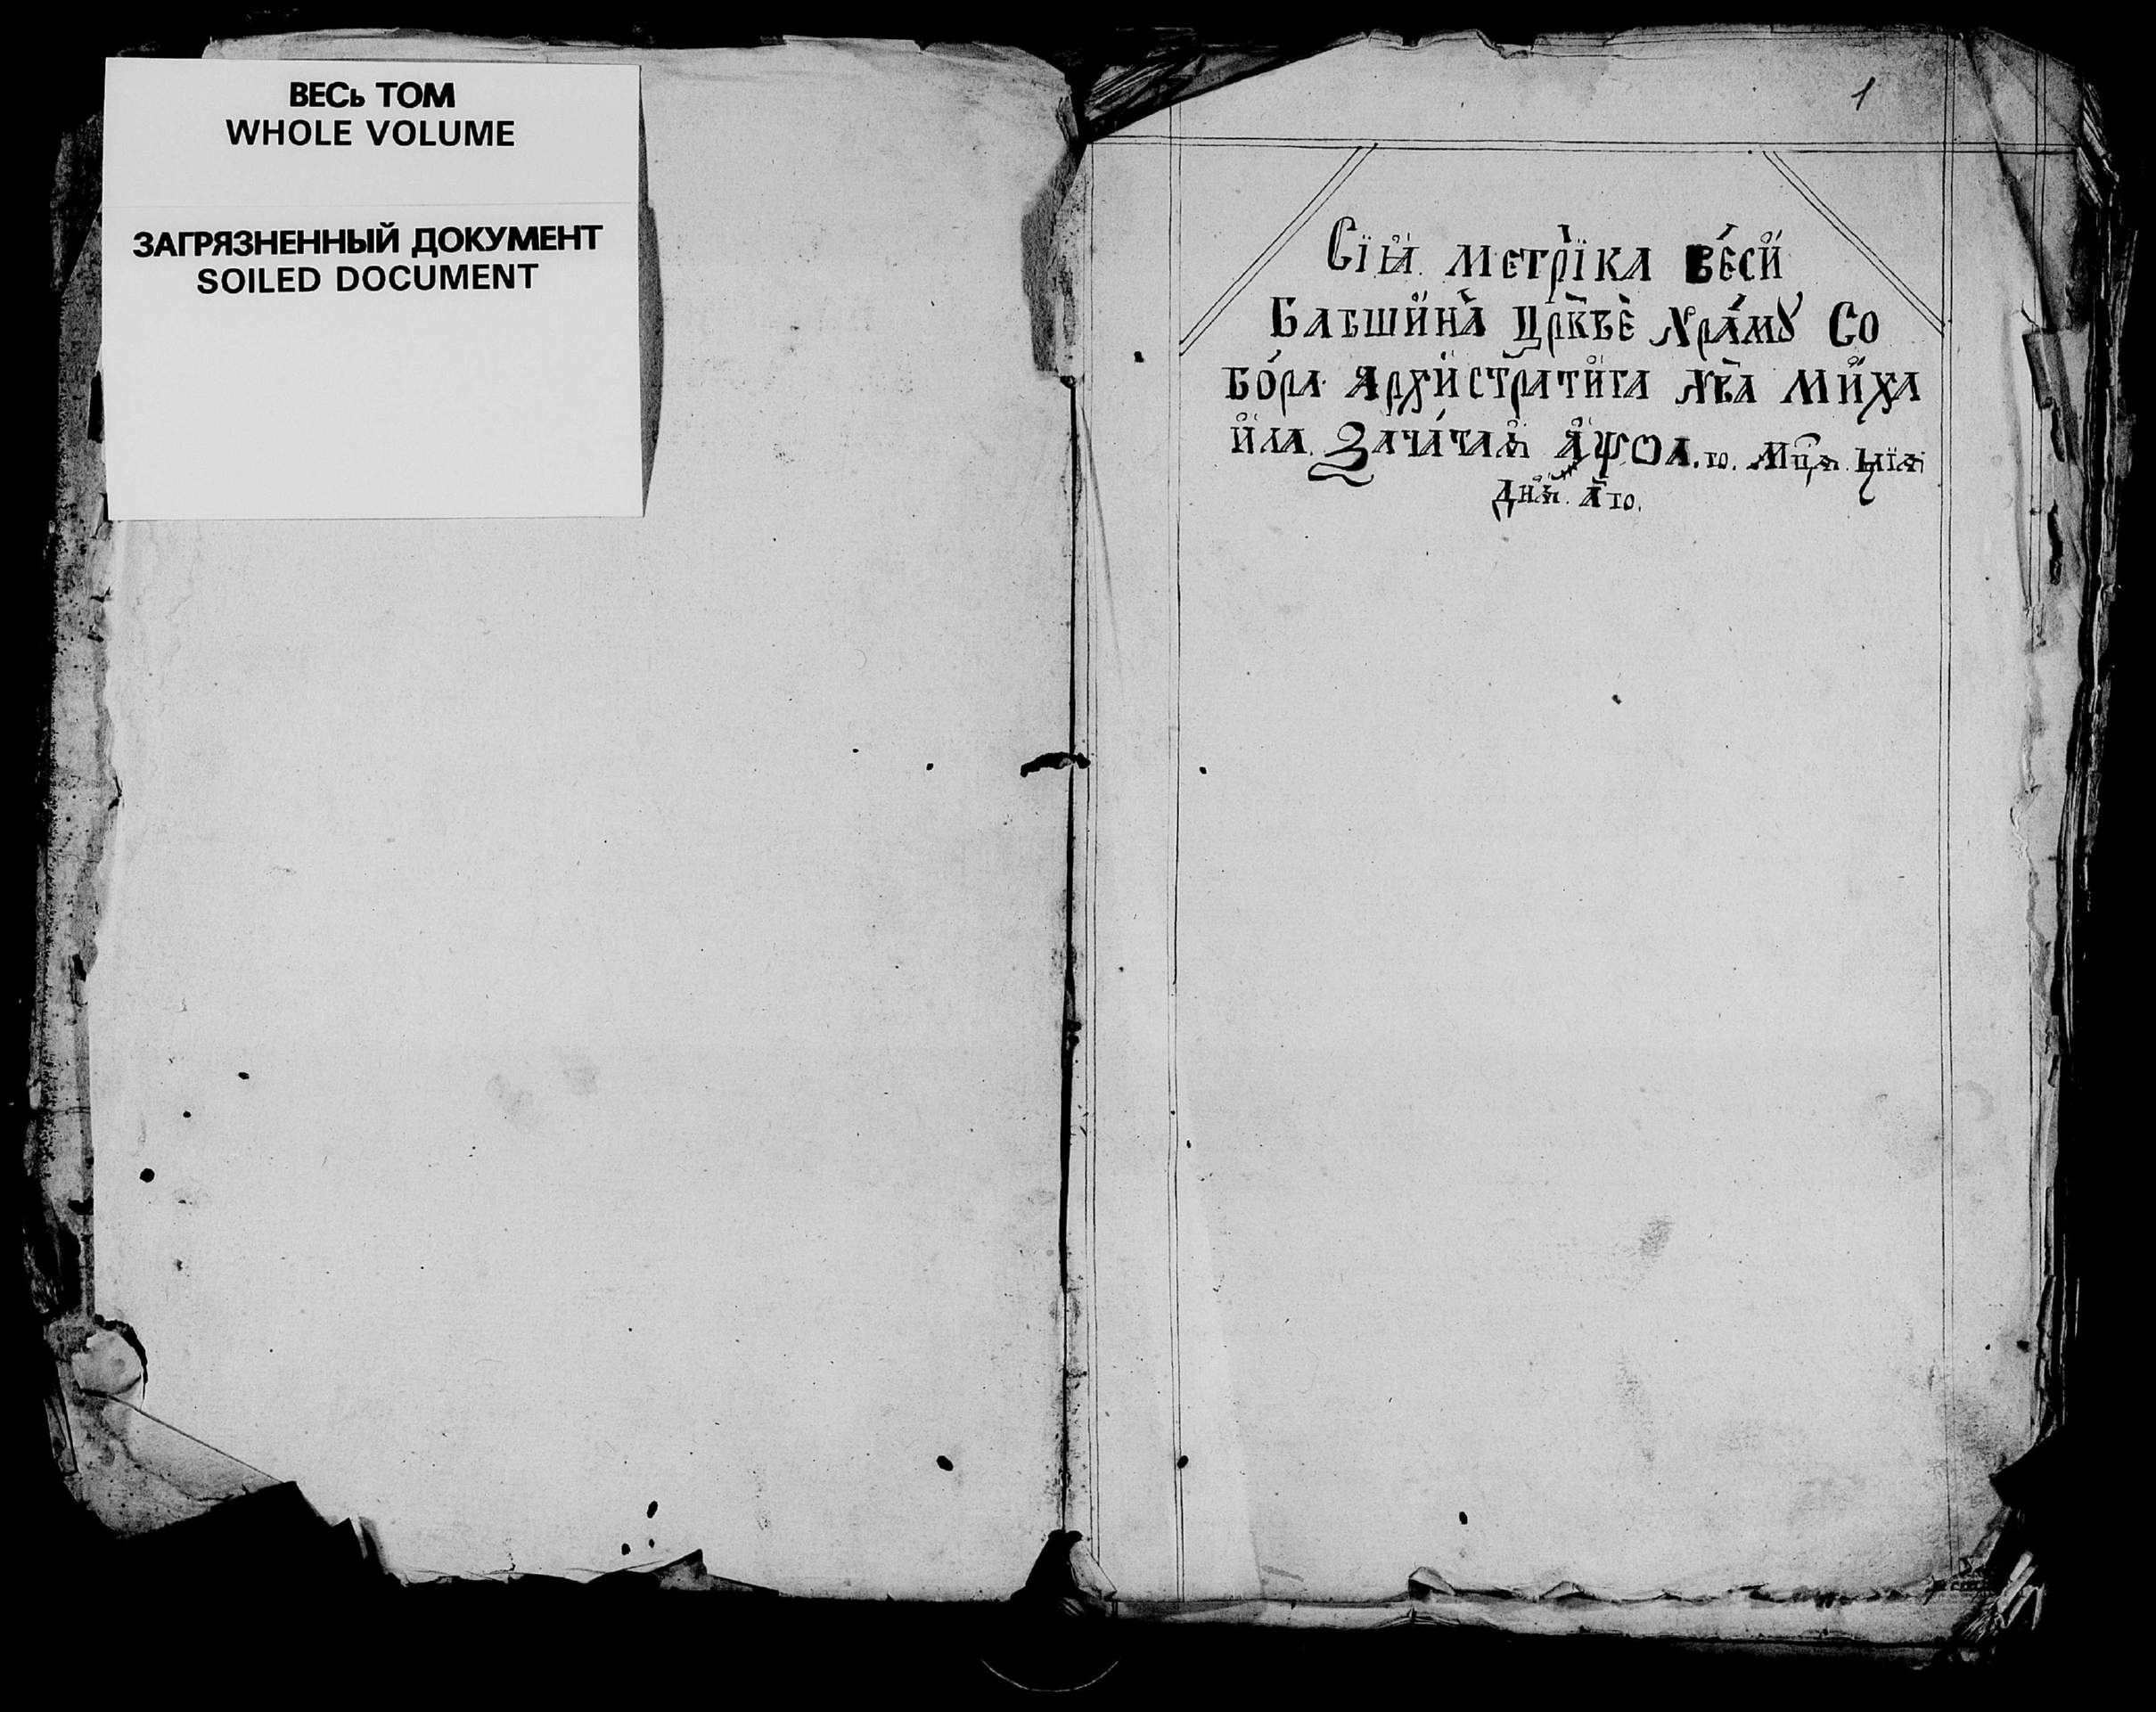 ВЕСЬ ТОМ
WHOLE VOLUME
ЗАГРЯЗНЕННЫЙ ДОКУМЕНТ
SOILED DOCUMENT
1
Сїѧ метрїка веси
Бабшина црквѣ Храму Со
бора Архистратига Хва Миха
ила Зачатая аѱоа.го. Мца Ыїѧ
Дня а го.